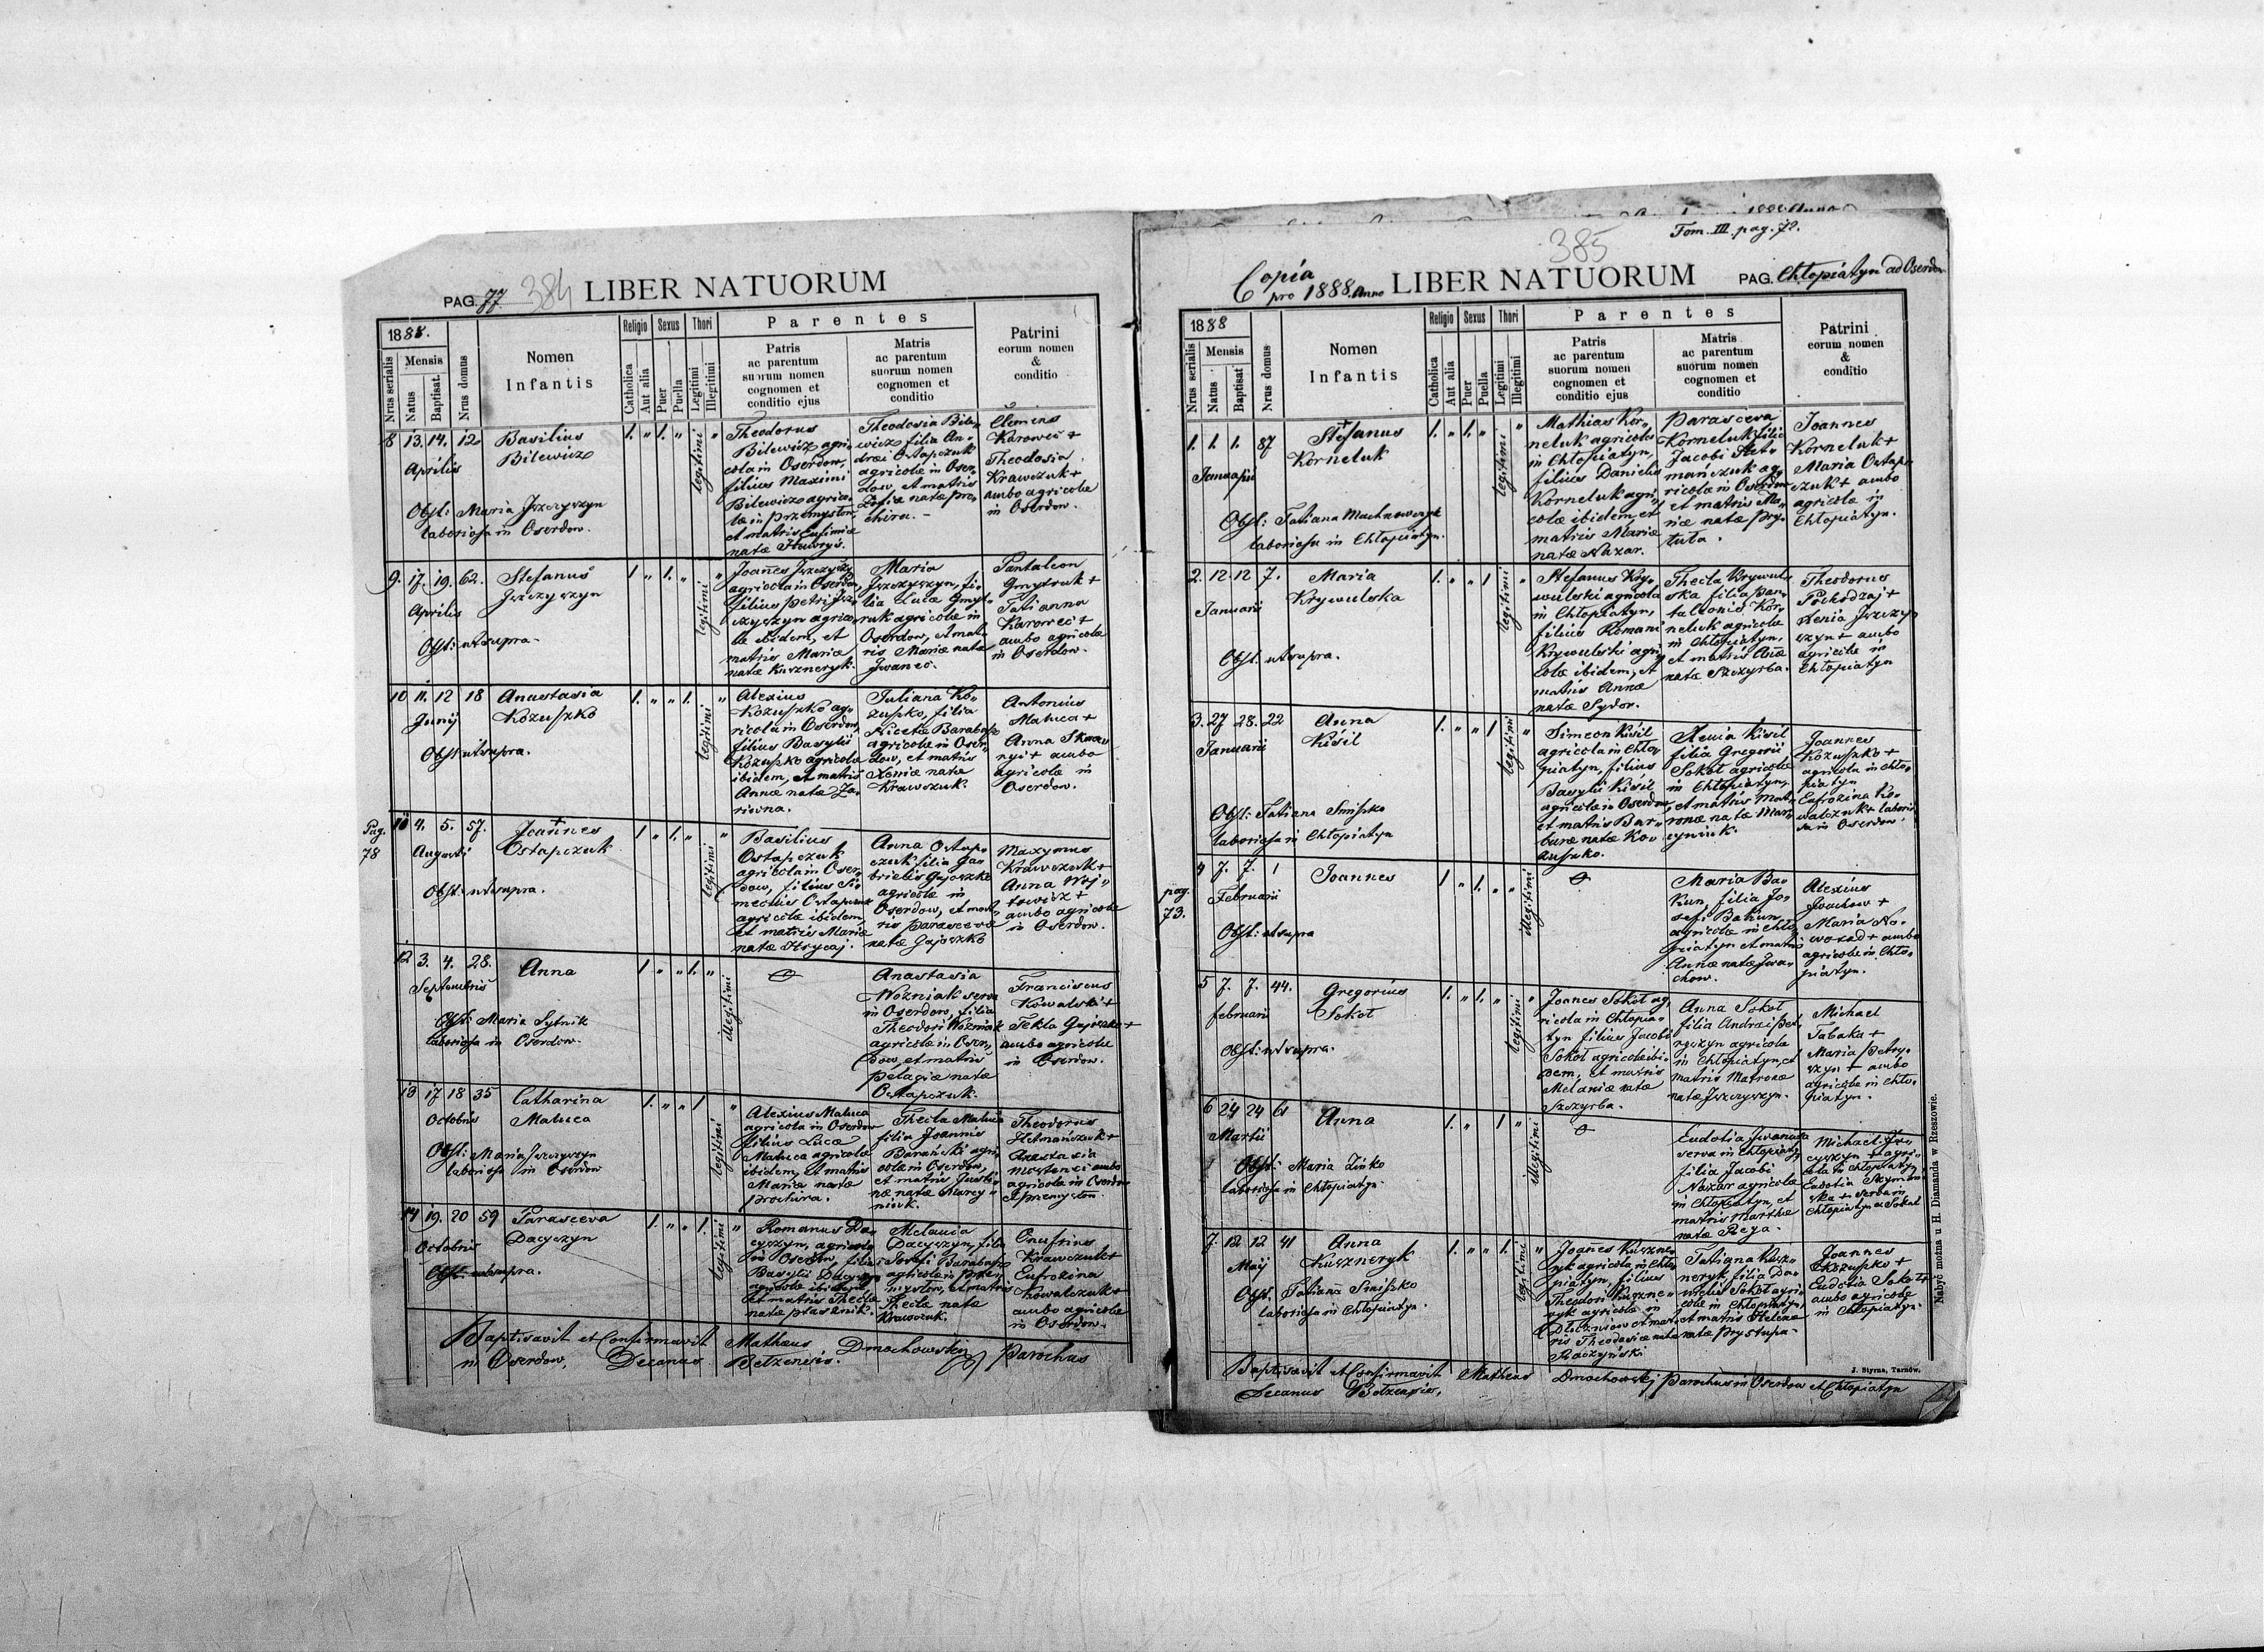 PAG. 77. 384 LIBER NATUORUM
1888.
Nrus serialis
Mensis
Natus
Baptisat.
Nrus domus
Nomen
Infantis
Religio
Catholica
Aut alia
Sexus
Puer
Puella
Thori
Legitimi
Illegitimi
Parentes
Patris
ac parentum
suorum nomen
cognomen et
conditio ejus
Matris
ac parentum
suorum nomen
cognomen et
conditio
Patrini
eorum nomen
&
conditio
8 13. 14. 12
Aprilis
Basilius
Bilewicz
Obst: Maria Jszczyszyn
laboriosa in Oserdow.
1. „ 1. „ legitimi „
Theodorus
Bilewicz agri-
cola in Oserdow,
filius Maximi
Bilewicz agrico-
læ in Przemysłow,
et matris Eufimiæ
natæ Hawryś.
Theodosia Bile-
wicz filia An-
drei Ostapczuk
agricolæ in Oser-
dow, et matris
natæ Pro-
chira. -
Clemens
Karoweć +
Theodosia
Krawczuk +
ambo agricolæ
in Oserdow.
9. 17. 19. 62.
Aprilis
Stefanus
Jszczyszyn
Obst: ut supra.
1 „ 1. „ legitimi „
Joanes Jszczyszyn
agricola in Oserdow,
filius Petri Jsz-
czyszyn agrico-
læ ibidem, et
matris Mariæ
natæ Kuszneryk.
Maria
Jszczyszyn, fi-
lia Lucæ Gmyt-
ruk agricolæ in
Oserdow, et mat-
ris Mariæ natæ
Jwaneć.
Pantaleon
Gmytruk +
Tatianna
Karoweć +
ambo agricolæ
in Oserdow.
10 11. 12 18
Junij
Anastasia
Kozuszko
Obst: ut supra.
1. „ „ 1. legitimi „
Alexius
Kozuszko ag-
ricola in Oserdow,
filius Basylii
Kozuszko agricolæ
ibidem, et matris
Annæ natæ Za-
riwna.
Juliana Ko-
zuszko, filia
Nicetæ Barabasz
agricolæ in Oser-
dow, et matris
Xeniæ natæ
Krawczuk.
Antonius
Matuca +
Anna
+ ambo
agricolæ in
Oserdow.
Pag.
78
11 4. 5. 57.
Augusti
+
Joannes
Ostapczuk
Obst: ut supra.
1 „ 1. „ legitimi „
Basilius
Ostapczuk
agricola in Oser-
dow, filius Si-
meonis Ostapczuk
agricolæ ibidem,
et matris Mariæ
natæ Hrycaj.
Anna Ostap-
czuk filia Ga-
brielis Gajoszko
agricolæ in
Oserdow, et mat-
ris Parascevæ
natæ Gajoszko
Maxymus
Krawczuk +
Anna Woj-
towicz +
ambo agricolæ
in Oserdow.
12 3. 4. 28.
Septembris
Anna
Obst: Maria Sytnik
laboriosa in Oserdow.
1 „ „ 1. „ illegitimi
Anastasia
Wozniak serva
in Oserdow, filia
Theodori Wozniak
agricolæ in Oser-
dow, et matris
Pelagiæ natæ
Ostapczuk.
Franciscus
Kowalski +
Tekla Gajoszko +
ambo agricolæ
in Oserdow.
13 17 18 35
Octobris
Catharina
Matuca
Obst: Maria Jszczyszyn
laboriosa in Oserdow
1. „ „ 1 legitimi „
Alexius Matuca
agricola in Oserdow
filius Lucæ
Matuca agricolæ
ibidem, et matris
Mariæ natæ
Prochira.
Thecla Matuca
filia Joannis
Barański agri-
colæ in Oserdow,
et matris Justi-
næ natæ Marcy-
niuk.
Theodorus
Hetmańczuk +
Anastasia
ambo
agricola in Oserdow
et Przemysłow.
14 19. 20 59
Octobris
Parasceva
Dacyszyn
Obst: ut supra.
1. „ „ 1. legitimi „
Romanus Da-
cyszyn, agricola
in Oserdow, filius
Basylii Dacyszyn
agricolæ ibidem,
et matris Theclæ
natæ Ptasznik.
Melania
Dacyszyn, filia
Josefi Barabasz
agricolæ in Prze-
mysłow, et matris
Theclæ natæ
Krawczuk.
Onufrius
Krawczuk +
Eufrozina
Kowalczuk +
ambo agricolæ
in Oserdow.
Baptisavit et Confirmavit Matheus Dmochowski Parochus
in Oserdow, Decanus Bełzensis.
Tom. III. pag. 72.
385
Copia
pro 1888. Anno LIBER NATUORUM PAG. Chłopiatyn ad Oserdow
1888
Nrus serialis
Mensis
Natus
Baptisat
Nrus domus
Nomen
Infantis
Religio
Catholica
Aut alia
Sexus
Puer
Puella
Thori
Legitimi
Illegitimi
Parentes
Patris
ac parentum
suorum nomen
cognomen et
conditio ejus
Matris
ac parentum
suorum nomen
cognomen et
conditio
Patrini
eorum nomen
&
conditio
1. 1. 1. 87
Januarii
+
Stefanus
Korneluk
Obst: Tatiana
laboriosa in Chłopiatyn.
1. „ 1. „ legitimi „
Mathias Kor-
neluk agricola
in Chłopiatyn,
filius Danielis
Korneluk agri-
colæ ibidem, et
matris Mariæ
natæ Nazar.
Parasceva
Korneluk filia
Jacobi Het-
mańczuk ag-
ricolæ in Oserdow
et matris Ma-
riæ natæ Pry-
tuła.
Joannes
Korneluk +
Maria Ostap-
czuk + ambo
agricolæ in
Chłopiatyn.
2. 12. 12 7.
Januarii
Maria
Krywulska
Obst: ut supra.
1. „ „ 1 legitimi „
Stefanus Kry-
wulski agricola
in Chłopiatyn,
filius Romani
Krywulski agri-
colæ ibidem, et
matris Annæ
natæ Sydor.
Thecla Krywul-
ska filia Pan-
taleonis Kor-
neluk agricolæ
in Chłopiatyn,
et matris
natæ Szczyrba.
Theodorus
Pochodzaj +
Xenia Jszczy-
szyn + ambo
agricolæ in
Chłopiatyn
3. 27 28. 22
Januarii
Anna
Kisil
Obst: Tatiana Smiszko
laboriosa in Chłopiatyn
1. „ „ 1 legitimi „
Simeon Kisil
agricola in Chło-
piatyn, filius
Basylii Kisil
agricolæ in Oserdow,
et matris Bar-
baræ natæ Ko-
zuszko.
Xenia Kisil
filia Gregorii
Sokoł agricolæ
in Chłopiatyn,
et matris Mat-
ronæ natæ Mar-
cyniuk.
Joannes
Kozuszko +
agricola in Chło-
piatyn
Eufrozina Ko-
walczuk + laborio-
sa in Oserdow.
pag.
73.
4 7. 7. 1
Februarii
Joannes
Obst: ut supra
1 „ 1. „ „ illegitimi
Maria Ba-
kun, filia Jo-
sefi Bakun,
agricolæ in Chło-
piatyn et matris
Annæ natæ Jwa-
chow.
Alexius
Jwachow +
Maria No-
wosad + ambo
agricolæ in Chło-
piatyn.
5 7. 7. 44.
februarii
Gregorius
Sokoł
Obst: ut supra.
1. „ 1. „ legitimi „
Joanes Sokoł ag-
ricola in Chłopia-
tyn filius Jacobi
Sokoł agricolæ ibi-
dem, et matris
Melaniæ natæ
Szczyrba.
Anna Sokoł
filia Andrei Pet-
ryszyn agricolæ
in Chłopiatyn, et
matris Matronæ
natæ Jszczyszyn.
Michael
Tabaka +
Maria Petry-
szyn + ambo
agricolæ in Chło-
piatyn.
6 24 24 61
Martii
Anna
Obst: Maria Zinko
laboriosa in Chłopiatyn.
1. „ 1 „ illegitimi
Eudotia
serva in Chłopiatyn,
filia Jacobi
Nazar agricolæ
in Chłopiatyn, et
matris Marthæ
natæ Rega.
Michael
+ agri-
cola in Chłopiatyn
Eudotia
+ serva in
Chłopiatyn
7. 12 12 41
Maij
Anna
Kuszneryk
Obst. Tatiana Smiszko
laboriosa in Chłopiatyn.
1. „ „ 1. legitimi „
Joanes Kuszne-
ryk agricola in Chło-
piatyn, filius
Theodori Kuszne-
ryk agricolæ in
Dłużniow et mat-
ris Theodosiæ natæ
Raczyński
Tatiana Kusz-
neryk filia Da-
nielis Sokoł agri-
colæ in Chłopiatyn,
et matris Helenæ
natæ Prystupa.
Joannes
Kozuszko +
Eudotia Sokoł +
ambo agricolæ
in Chłopiatyn.
Baptisavit et Confirmavit Matheus Dmochowski Parochus in Oserdow et Chłopiatyn
Decanus Bełzensis,
J. Styrna, Tarnów.
Nabyć można u H. Diamanda w Rzeszowie.